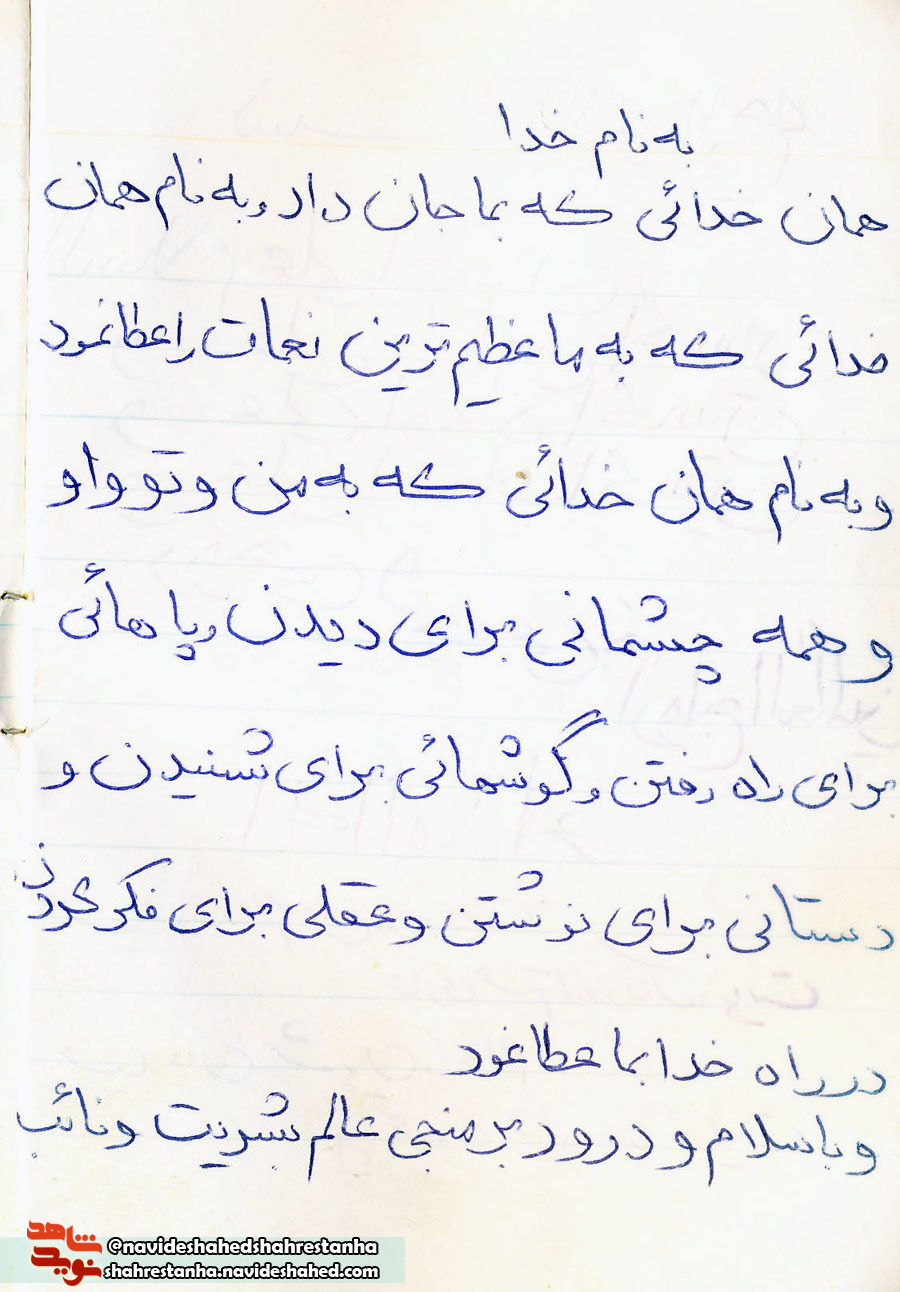 به نام خدا
همان خدائی که بما جان داد و به نام همان
خدائی که به ما عظیم ترین نعمات را عطا نمود
و به نام همان خدائی که به من و تو و او
و همه چشمانی برای دیدن و پاهائی
برای راه رفتن و گوشهائی برای شنیدن و
دستانی برای نوشتن و عقلی برای فکر کردن
در راه خدا بما عطا نمود
و با سلام و درود بر منجی عالم بشریت و نائب
شاهد
نوید
@navideshahedshahrestanha
shahrestanha.navideshahed.com